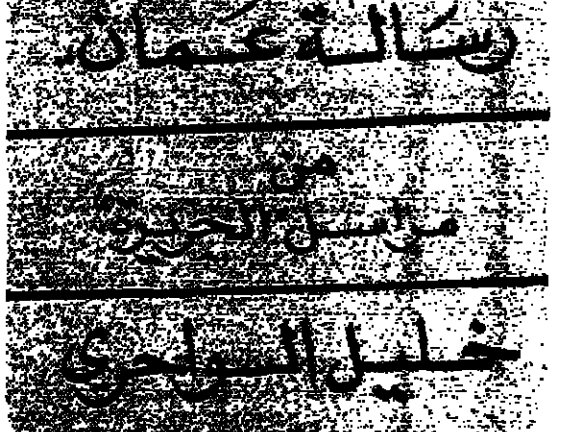 رسالة عمان
من
مراسل الجزيرة
خليل السواحري